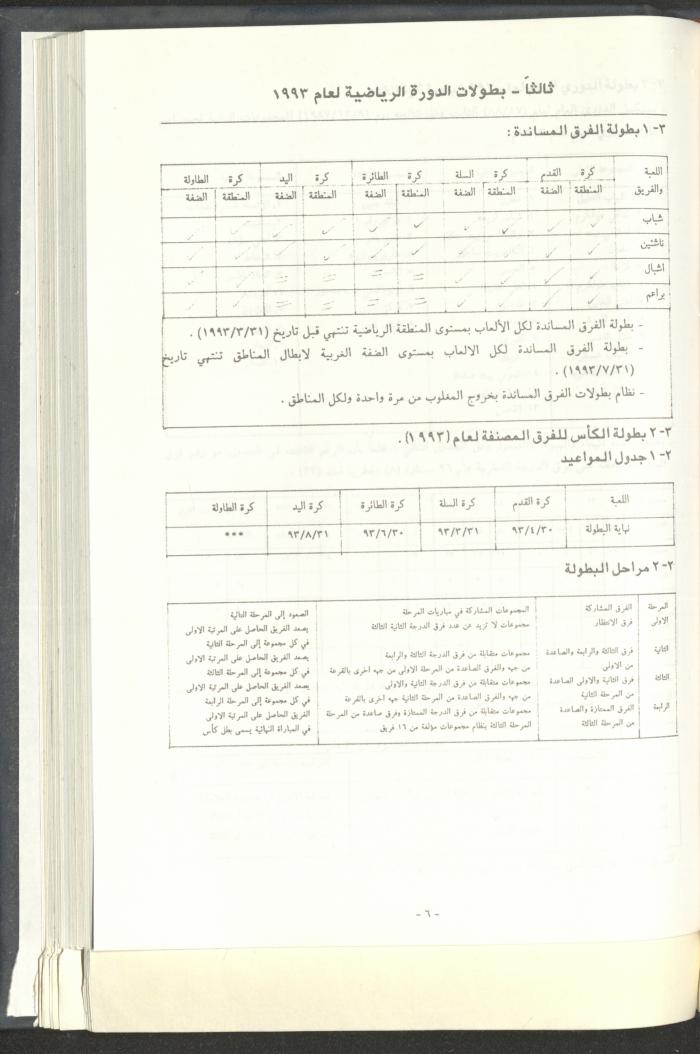 ثالثاً - بطولات الدورة الرياضية لعام ١٩٩٣
٣-١ بطولة الفرق المساندة :
اللعبة كرة القدم كرة السلة كرة الطائرة كرة اليد كرة الطاولة
والفريق المنطقة الضفة المنطقة الضفة المنطقة الضفة المنطقة الضفة المنطقة الضفة
شباب ✓ ✓ ✓ ✓ ✓ ✓ ✓ ✓ ✓ ✓
ناشئين ✓ ✓ ✓ ✓ ✓ ✓ ✓ ✓ ✓ ✓
اشبال ✓ ✓ ✓ ✓ = = = = ✓ ✓
براعم ✓ ✓ ✓ ✓ = = = = ✓ ✓
- بطولة الفرق المساندة لكل الألعاب بمستوى المنطقة الرياضية تنتهي قبل تاريخ (١٩٩٣/٣/٣١) .
- بطولة الفرق المساندة لكل الالعاب بمستوى الضفة الغربية لابطال المناطق تنتهي تاريخ
(١٩٩٣/٧/٣١) .
- نظام بطولات الفرق المساندة بخروج المغلوب من مرة واحدة ولكل المناطق .
٣-٢ بطولة الكأس للفرق المصنفة لعام (١٩٩٣) .
٢-١ جدول المواعيد
اللعبة كرة القدم كرة السلة كرة الطائرة كرة اليد كرة الطاولة
نهاية البطولة ٩٣/٤/٣٠ ٩٣/٣/٣١ ٩٣/٦/٣٠ ٩٣/٨/٣١ ***
٢-٢ مراحل البطولة
المرحلة الفرق المشاركة المجموعات المشاركة في مباريات المرحلة الصعود إلى المرحلة التالية
الاولى فرق الانتظار مجموعات لا تزيد عن عدد فرق الدرجة الثانية الثالثة يصعد الفريق الحاصل على المرتبة الاولى
في كل مجموعة إلى المرحلة الثانية
الثانية فرق الثالثة والرابعة والصاعدة مجموعات متقابلة من فرق الدرجة الثالثة والرابعة يصعد الفريق الحاصل على المرتبة الاولى
من الاولى من جهه والفرق الصاعدة من المرحلة الاولى من جهه اخرى بالقرعة في كل مجموعة إلى المرحلة الثالثة
الثالثة فرق الثانية والاولى الصاعدة مجموعات متقابلة من فرق الدرجة الثانية والاولى يصعد الفريق الحاصل على المرتبة الاولى
من المرحلة الثانية من جهه والفرق الصاعدة من المرحلة الثانية جهه اخرى بالقرعة في كل مجموعة إلى المرحلة الرابعة
الرابعة الفرق الممتازة والصاعدة مجموعات متقابلة من فرق الدرجة الممتازة وفرق صاعدة من المرحلة الفريق الحاصل على المرتبة الاولى
من المرحلة الثالثة المرحلة الثالثة بنظام مجموعات مؤلفة من ١٦ فريق في المباراة النهائية يسمى بطل كأس
- ٦ -